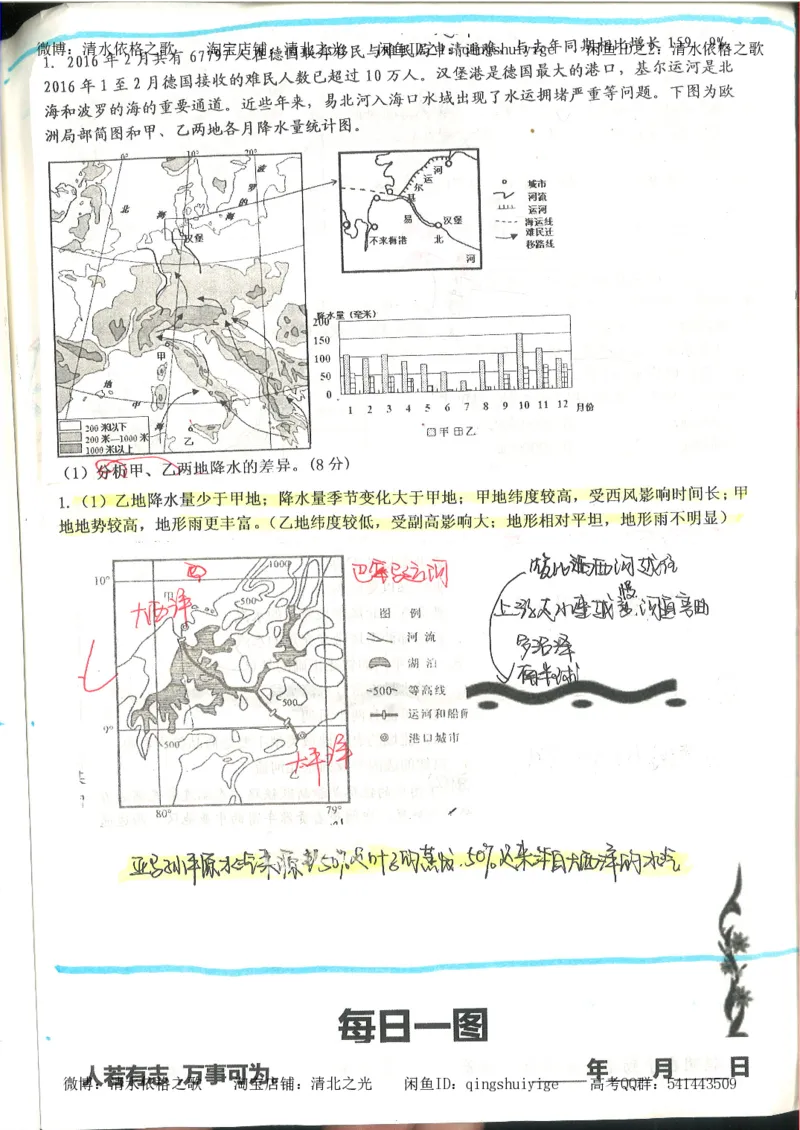 微博：清水依格之歌 淘宝店铺：清北之光 闲鱼ID：qingshuiyige 闲鱼ID之2：清水依格之歌
1. 2016 年 2 月共有 67797 人在德国联邦移民与难民局申请避难，与去年同期相比增长 159．9%。
2016 年 1 至 2 月德国接收的难民人数已超过 10 万人。汉堡港是德国最大的港口，基尔运河是北
海和波罗的海的重要通道。近些年来，易北河入海口水域出现了水运拥堵严重等问题。下图为欧
洲局部简图和甲、乙两地各月降水量统计图。
0° 10° 20°
波
罗
的
海
北 海
汉堡
甲
地 中 海
乙
200 米以下
200 米—1000 米
1000 米以上
基 尔 运 河
易 北 河
汉堡
不来梅港
城市
河流
运河
海运线
难民迁
移路线
降水量（毫米）
200
150
100
50
0
1 2 3 4 5 6 7 8 9 10 11 12 月份
甲 乙
（1）分析甲、乙两地降水的差异。(8 分)
1.（1）乙地降水量少于甲地；降水量季节变化大于甲地；甲地纬度较高，受西风影响时间长；甲
地地势较高，地形雨更丰富。（乙地纬度较低，受副高影响大；地形相对平坦，地形雨不明显）
10°
9°
80° 79°
1000
500
500
500
大西洋
太平洋
巴拿马运河
图 例
河 流
湖 泊
500 等高线
运河和船闸
港口城市
多沼泽
南半球
亚马孙平原水气来源有50%是叶子的蒸发，50%是来自大西洋的水气
每日一图
人若有志，万事可为。
年 月 日
微博：清水依格之歌 淘宝店铺：清北之光 闲鱼ID：qingshuiyige 高考QQ群：541443509